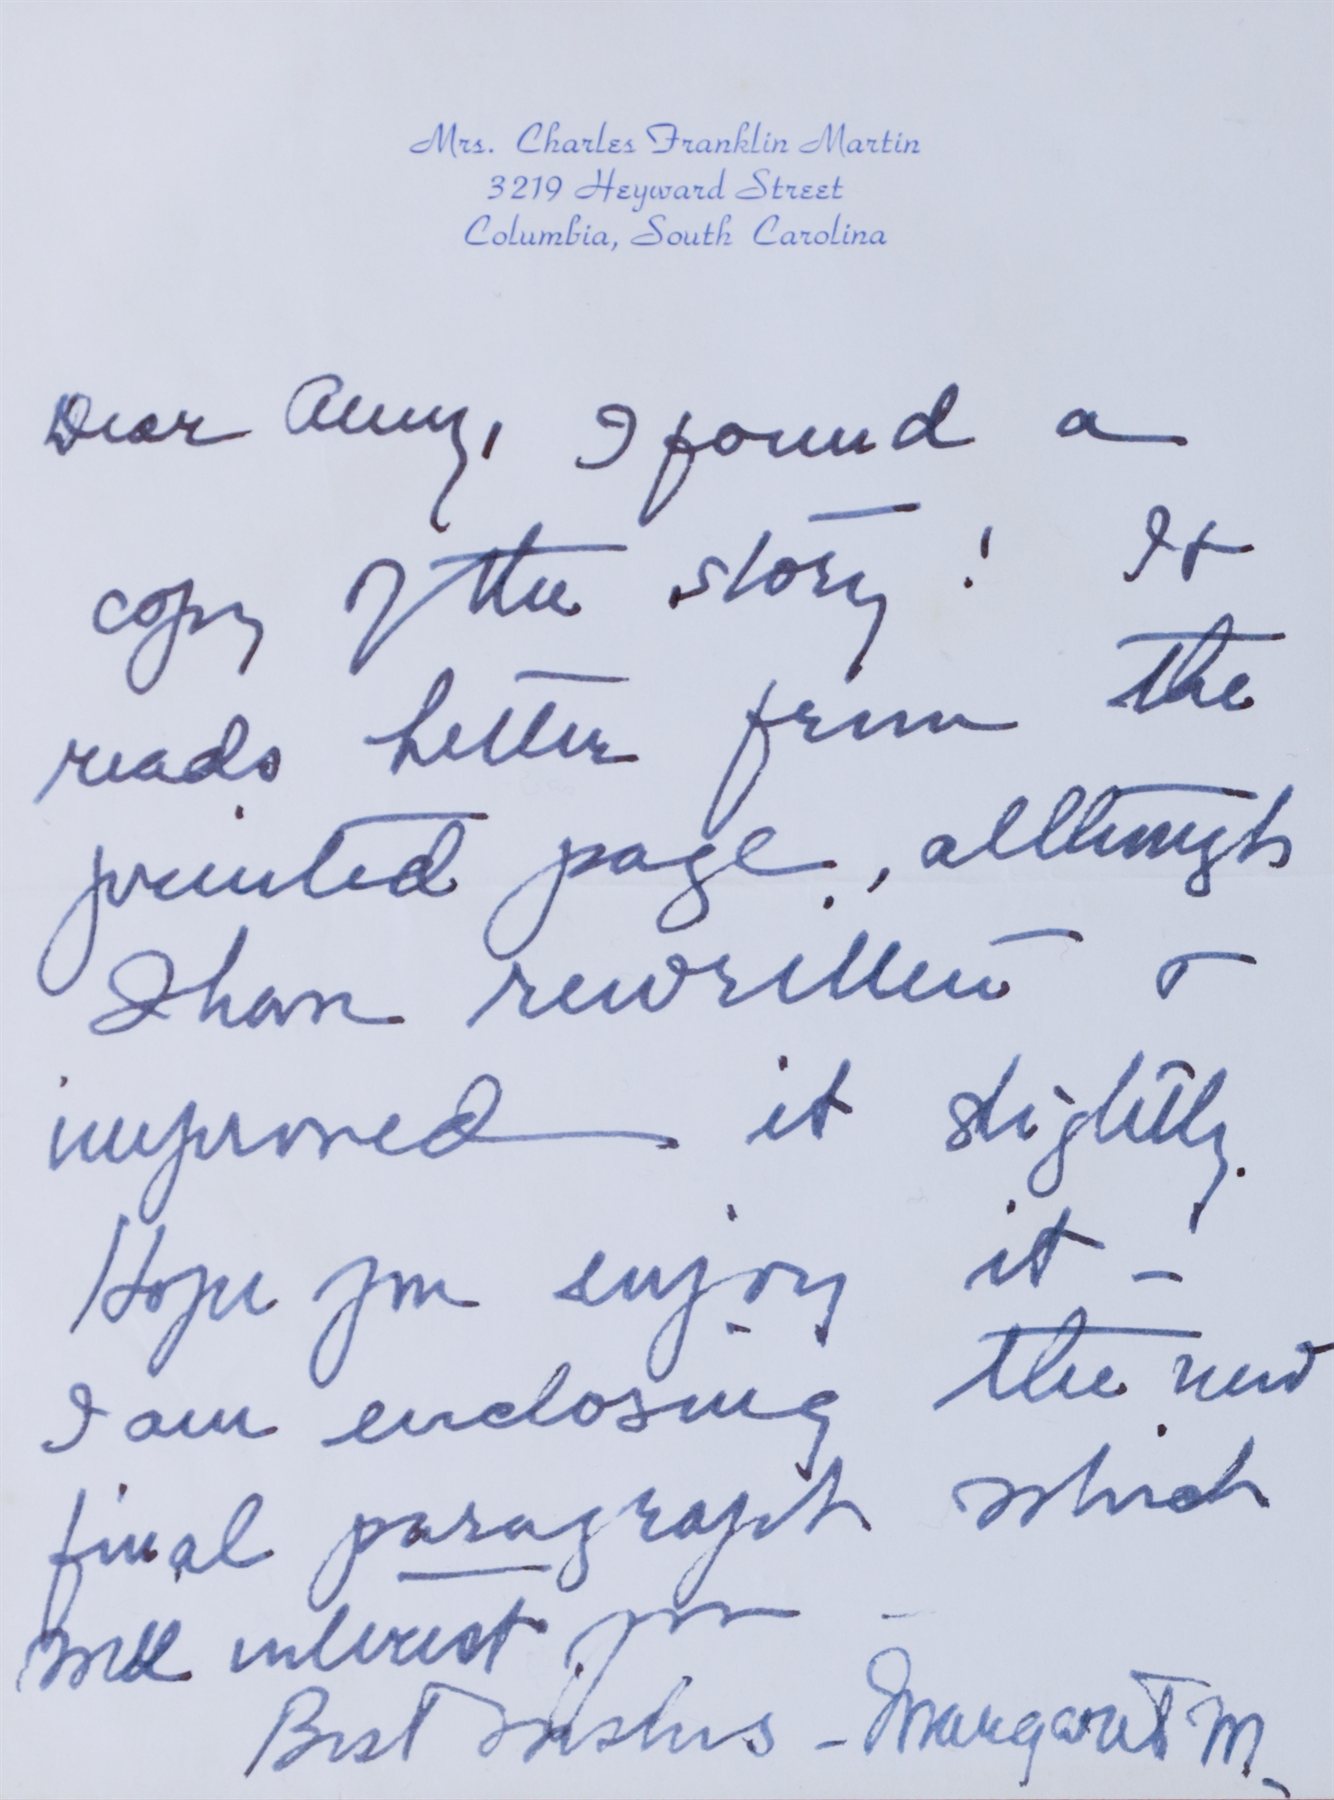 Mrs. Charles Franklin Martin
3219 Heyward Street
Columbia, South Carolina
Dear Amy, I found a
copy of the story! It
reads better from the
printed page, although
I have rewritten &
improved it slightly.
Hope you enjoy it -
I am enclosing the new
final paragraph which
will interest you -
Best Wishes - Margaret M.